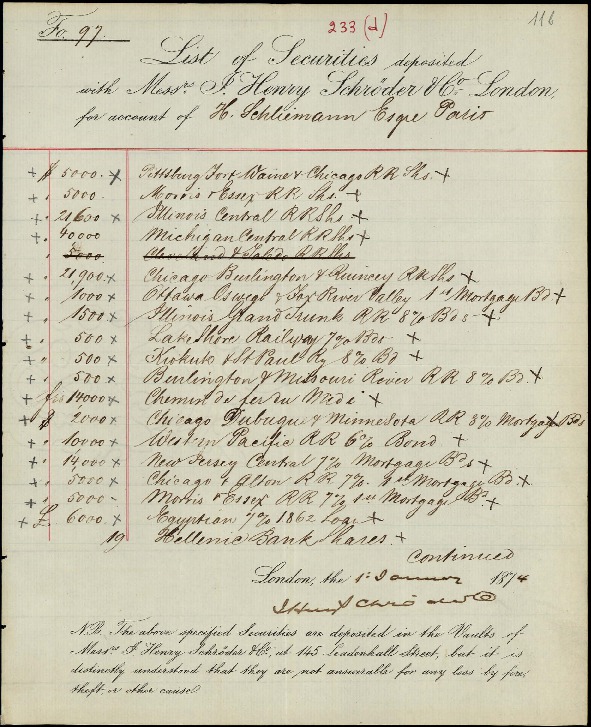 116
233 (d)
Fo. 97.
List of Securities deposited
with Messrs J. Henry Schröder & Co. London,
for account of H. Schliemann Esqre Paris
+ $ 5000. + Pittsburg Fort Waine & Chicago RR Shs. +
+ " 5000. Morris & Essex RR Shs. +
+ " 21,600 + Illinois Central RR Shs +
+ " 40000 Michigan Central RR Shs +
" 5000 Cleveland & Toledo RR Shs
+ " 21,900 + Chicago Burlington & Quincey RR Shs +
+ " 1000 + Ottawa Oswego & Fox River Valley 1st Mortgage Bd +
+ " 1500 + Illinois Grand Trunk RR 8% Bds +
+ " 500 + Lake Shore Railway 7% Bds +
+ " 500 + Kiokuk & St Paul Ry 8% Bd +
+ " 500 + Burlington & Missouri River RR 8% Bd. +
+ frs 14000 + Chemin de fer du Midi +
+ $ 2000 + Chicago Dubuque & Minnesota RR 8% Mortgage Bds
+ " 10000 + Western Pacific RR 6% Bond +
+ " 14,000 + New Jersey Central 7% Mortgage Bds +
+ " 5000 + Chicago & Alton RR 7% 1st Mortgage Bd. +
+ " 5000 - Morris & Essex RR 7% 1st Mortgage Bd. +
+ £ 6000. + Egyptian 7% 1862 Loan +
19 Hellenic Bank Shares +
Continued
London, the 1st January 1874
J Henry Schröder & Co
N.B. The above specified Securities are deposited in the Vaults of
Messrs J. Henry Schröder & Co., at 145 Leadenhall Street, but it is
distinctly understood that they are not answerable for any loss by fire,
theft, or other cause.